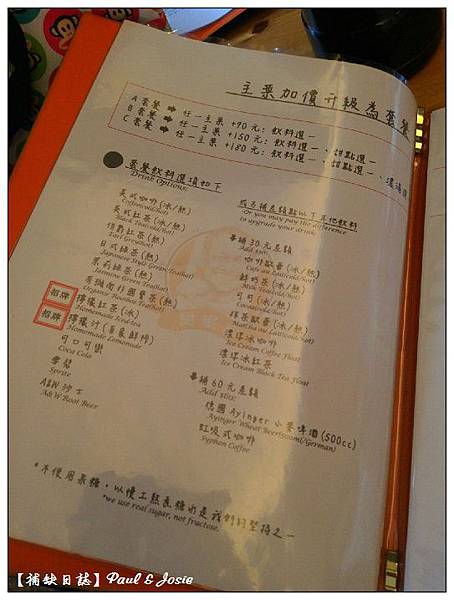 主菜加價升級為套餐
A套餐 ➡ 任一主菜 +70元: 飲料選一
B套餐 ➡ 任一主菜 +150元: 飲料選一、甜點選一
C套餐 ➡ 任一主菜 +180元: 飲料選一、甜點選一、濃湯
套餐飲料選項如下
Drink Options:
美式咖啡(冰/熱)
Coffee(cold/hot)
美式紅茶(冰/熱)
Black Tea(cold/hot)
伯爵紅茶(熱)
Earl Grey(hot)
日式綠茶(熱)
Japanese Style Green Tea(hot)
茉莉綠茶(熱)
Jasmine Green Tea(hot)
有機南非國寶茶(熱)
Organic Rooibos Tea(hot)
招牌 檸檬紅茶(冰)
Homemade Iced-tea
招牌 檸檬汁(
Homemade Lemonade
可口可樂
Coca Cola
雪碧
Sprite
A&W沙士
A&W Root Beer
或另補差額點以下其他飲料
Or you may pay the difference
to upgrade your drink:
單補30元差額
Add $30:
咖啡歐蕾(冰/熱)
Cafe au Lait(cold/hot)
鮮奶茶(冰/熱)
Milk Tea(cold/hot)
可可(冰/熱)
Cocoa(cold/hot)
抹茶歐蕾(冰/熱)
Matcha au Lait(cold/hot)
漂浮冰咖啡
Ice Cream Coffee Float
漂浮冰紅茶
Ice Cream Black Tea Float
單補60元差額
Add $60:
德國Ayinger小麥啤酒(500cc)
Ayinger Wheat Beer(500ml/German)
虹吸式咖啡
Syphon Coffee
*不使用果糖,以慢工熬蔗糖也是我們的堅持之一
*we use real sugar, not fructose.
【補缺日誌】Paul & Josie